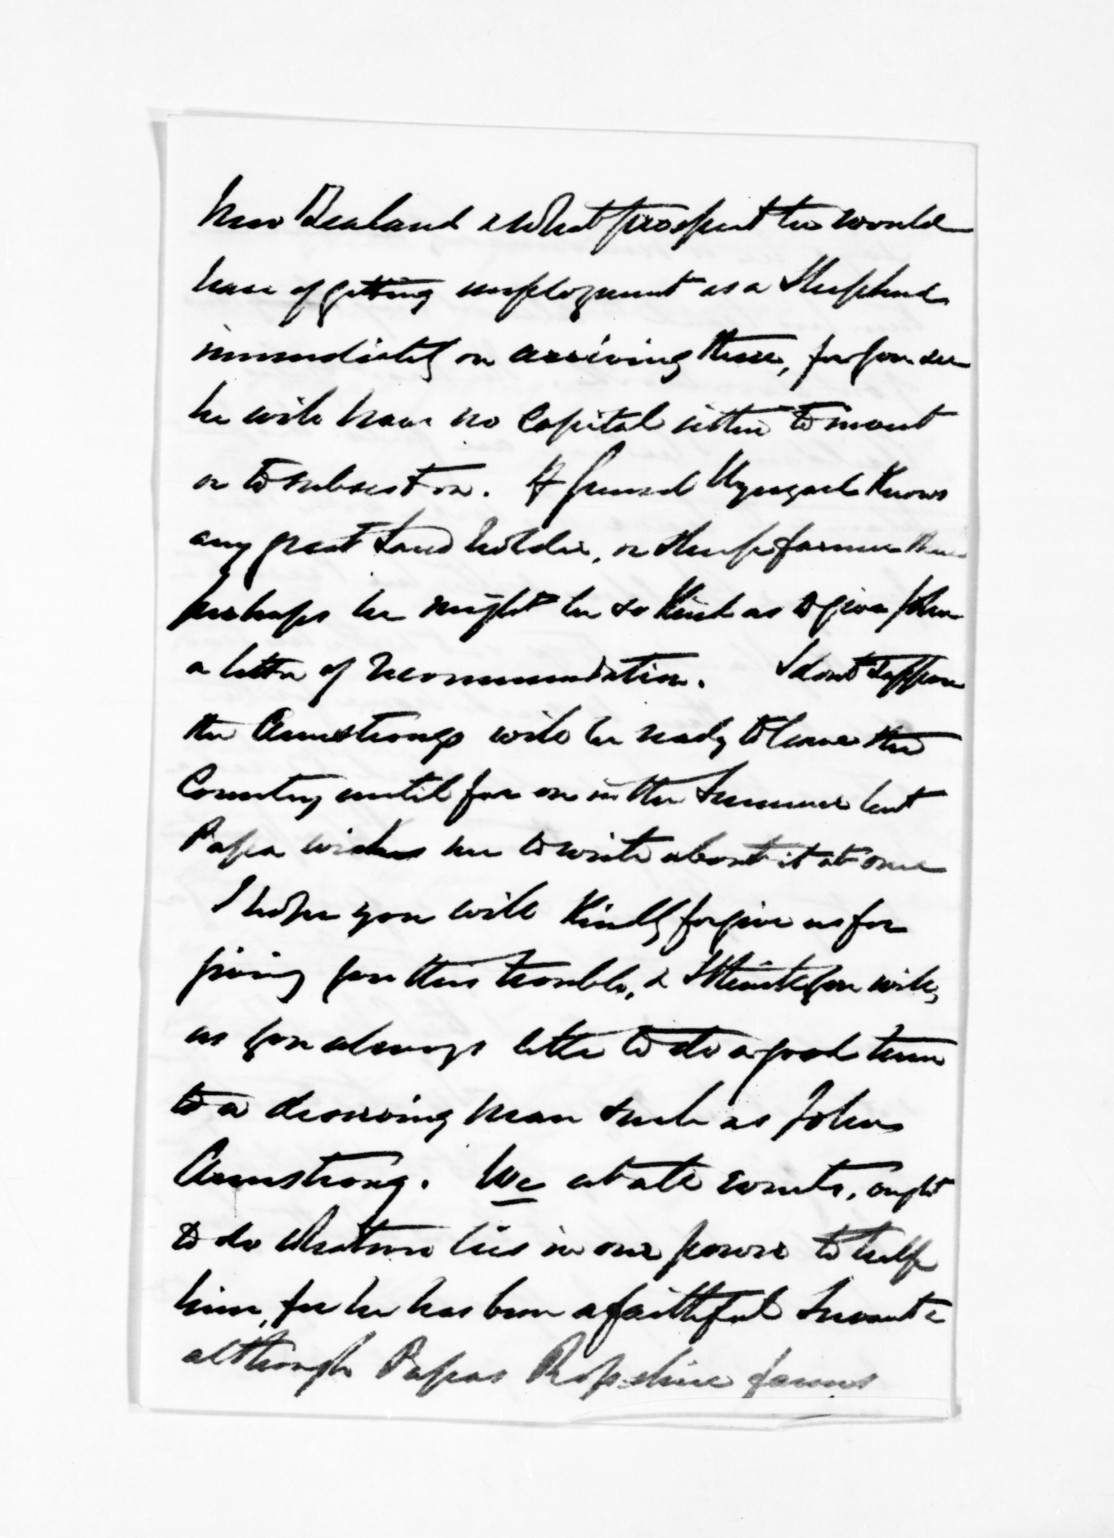 New Zealand & what prospect he would
have of getting employment as a Shepherd
immediately on arriving there, for you see
he will have no Capital either to invest
or to subsist on. If friend knows
any great Land holder, or sheep farmer there
perhaps he might be so kind as to give John
a letter of recommendation. I dont suppose
the Armstrongs will be ready to leave the
Country until far on in the Summer but
Papa wishes me to write about it at once
I hope you will kindly forgive us for
giving you this trouble, & I think you will,
as you always like to do a good turn
to a deserving man such as John
Armstrong. We at all events, ought
to do whatever lies in our power to help
him, for he has been a faithful Servant &
although Papas Ropshire farms